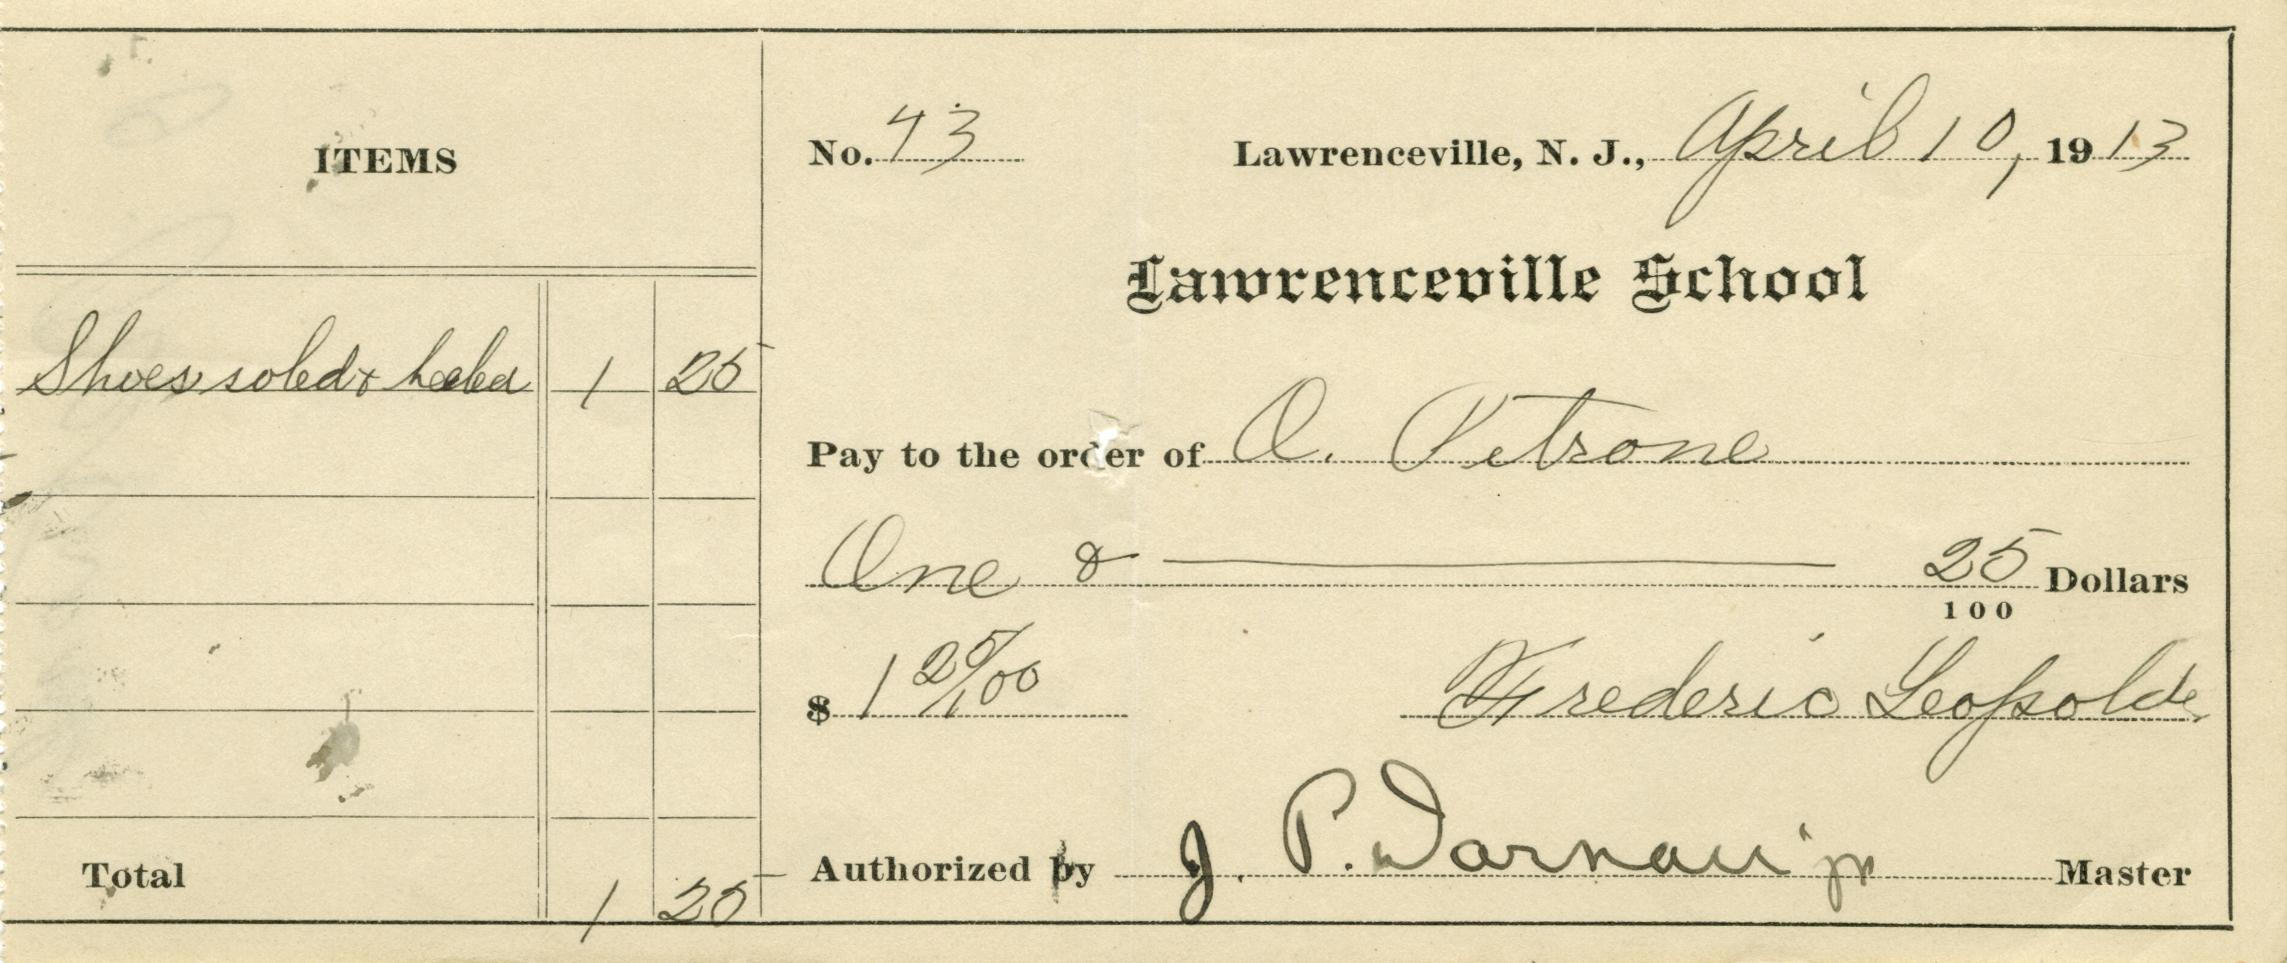 ITEMS
Shoes soled & heeled 1 25
Total 1 25
No. 43 Lawrenceville, N. J., April 10, 1913
Lawrenceville School
Pay to the order of O. Petrone
One & 25 Dollars
100
$ 1 25/100 Frederic Leopold
Authorized by J. P. Darnall Jr Master